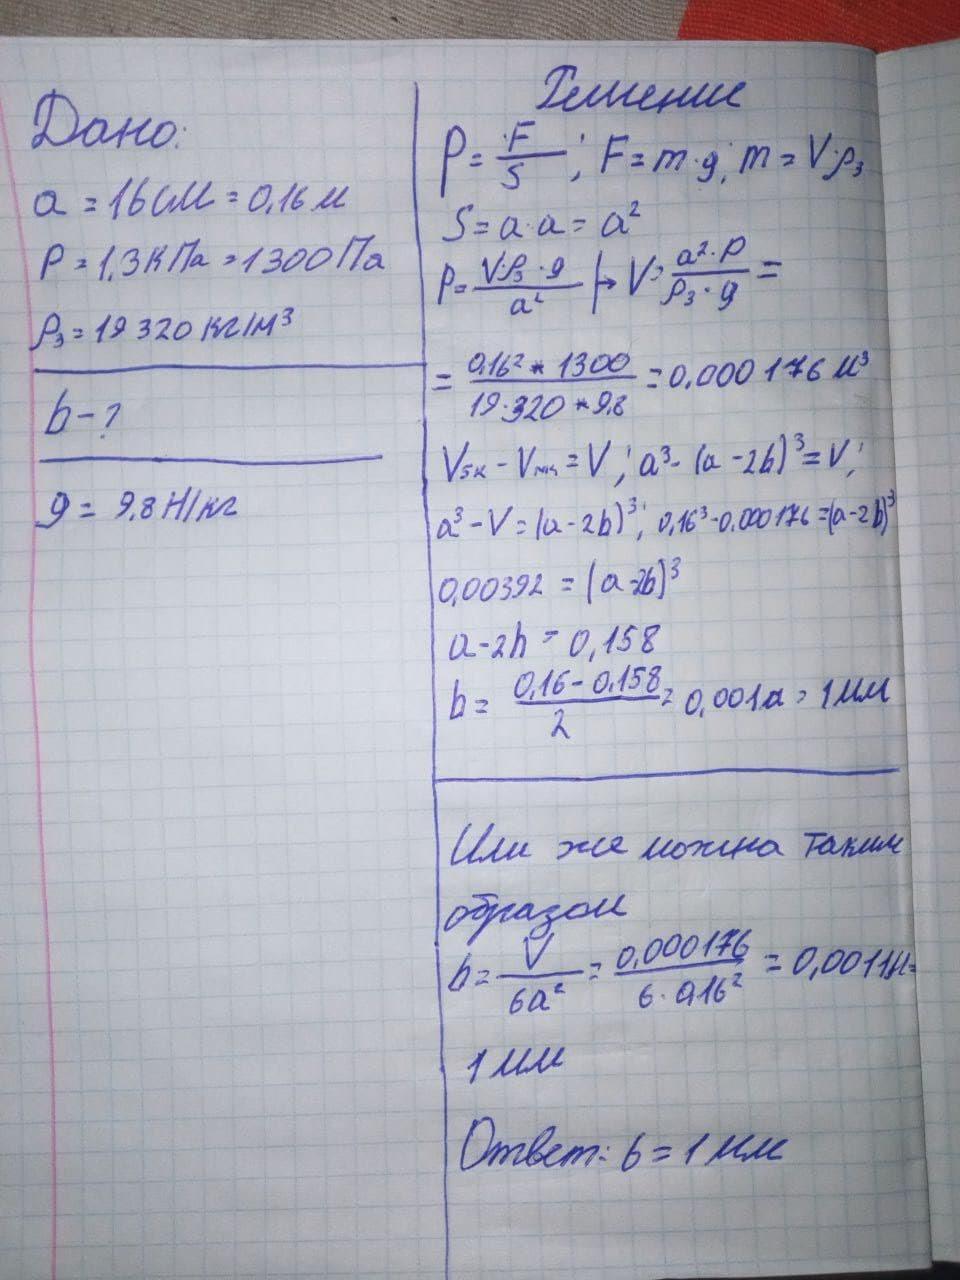 Дано:
a = 16 см = 0,16 м
P = 1,3 кПа = 1300 Па
ρз = 19 320 кг/м³
b - ?
g = 9.8 Н/кг
Решение
P = F/S ; F = m·g; m = V·ρз
S = a·a = a²
P = V·ρз·g / a² |→ V = a²·P / ρз·g =
= 0,16² * 1300 / 19·320 * 9.8 = 0.000 176 м³
Vбк - Vмк = V ; a³ - (a - 2b)³ = V;
a³ - V = (a - 2b)³; 0,16³ - 0.000176 = (a - 2b)³
0,00392 = (a - 2b)³
a - 2b = 0,158
b = 0,16 - 0,158 / 2 = 0,001м = 1 мм
Или же можно таким
образом
b = V / 6a² = 0,000176 / 6·0,16² = 0,0011м =
1 мм
Ответ: b = 1 мм